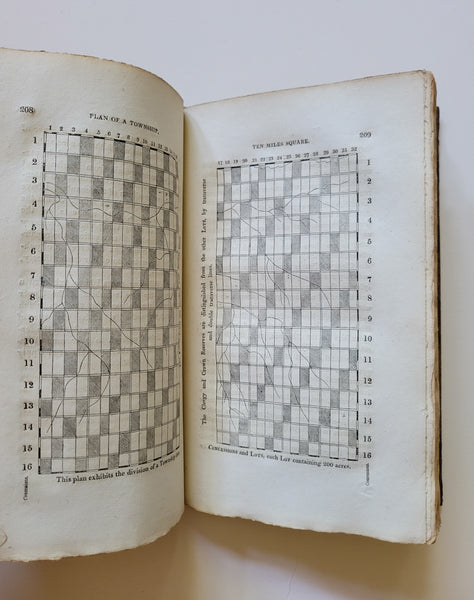 208
PLAN OF A TOWNSHIP,
1 2 3 4 5 6 7 8 9 10 11 12 13 14
1
2
3
4
5
6
7
8
9
10
11
12
13
14
15
16
This plan exhibits the division of a Township
209
TEN MILES SQUARE.
17 18 19 20 21 22 23 24 25 26 27 28 29 30 31 32
1
2
3
4
5
6
7
8
9
10
11
12
13
14
15
16
The Clergy and Crown Reserves are distinguished from the other Lots, by transverse
and double transverse lines.
Concessions and Lots, each Lot containing 200 acres.